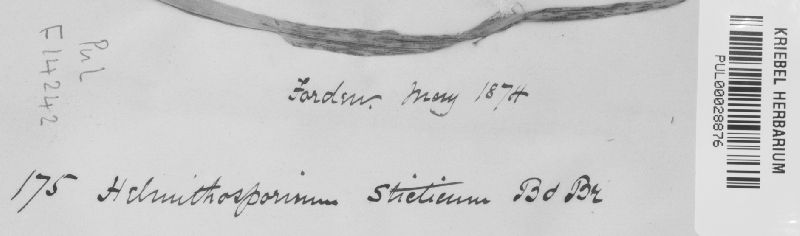 Pul
F14242
Forden. May 1874
175 Helmithosporium Sticticum B d Br
KRIEBEL HERBARIUM
PUL00028876